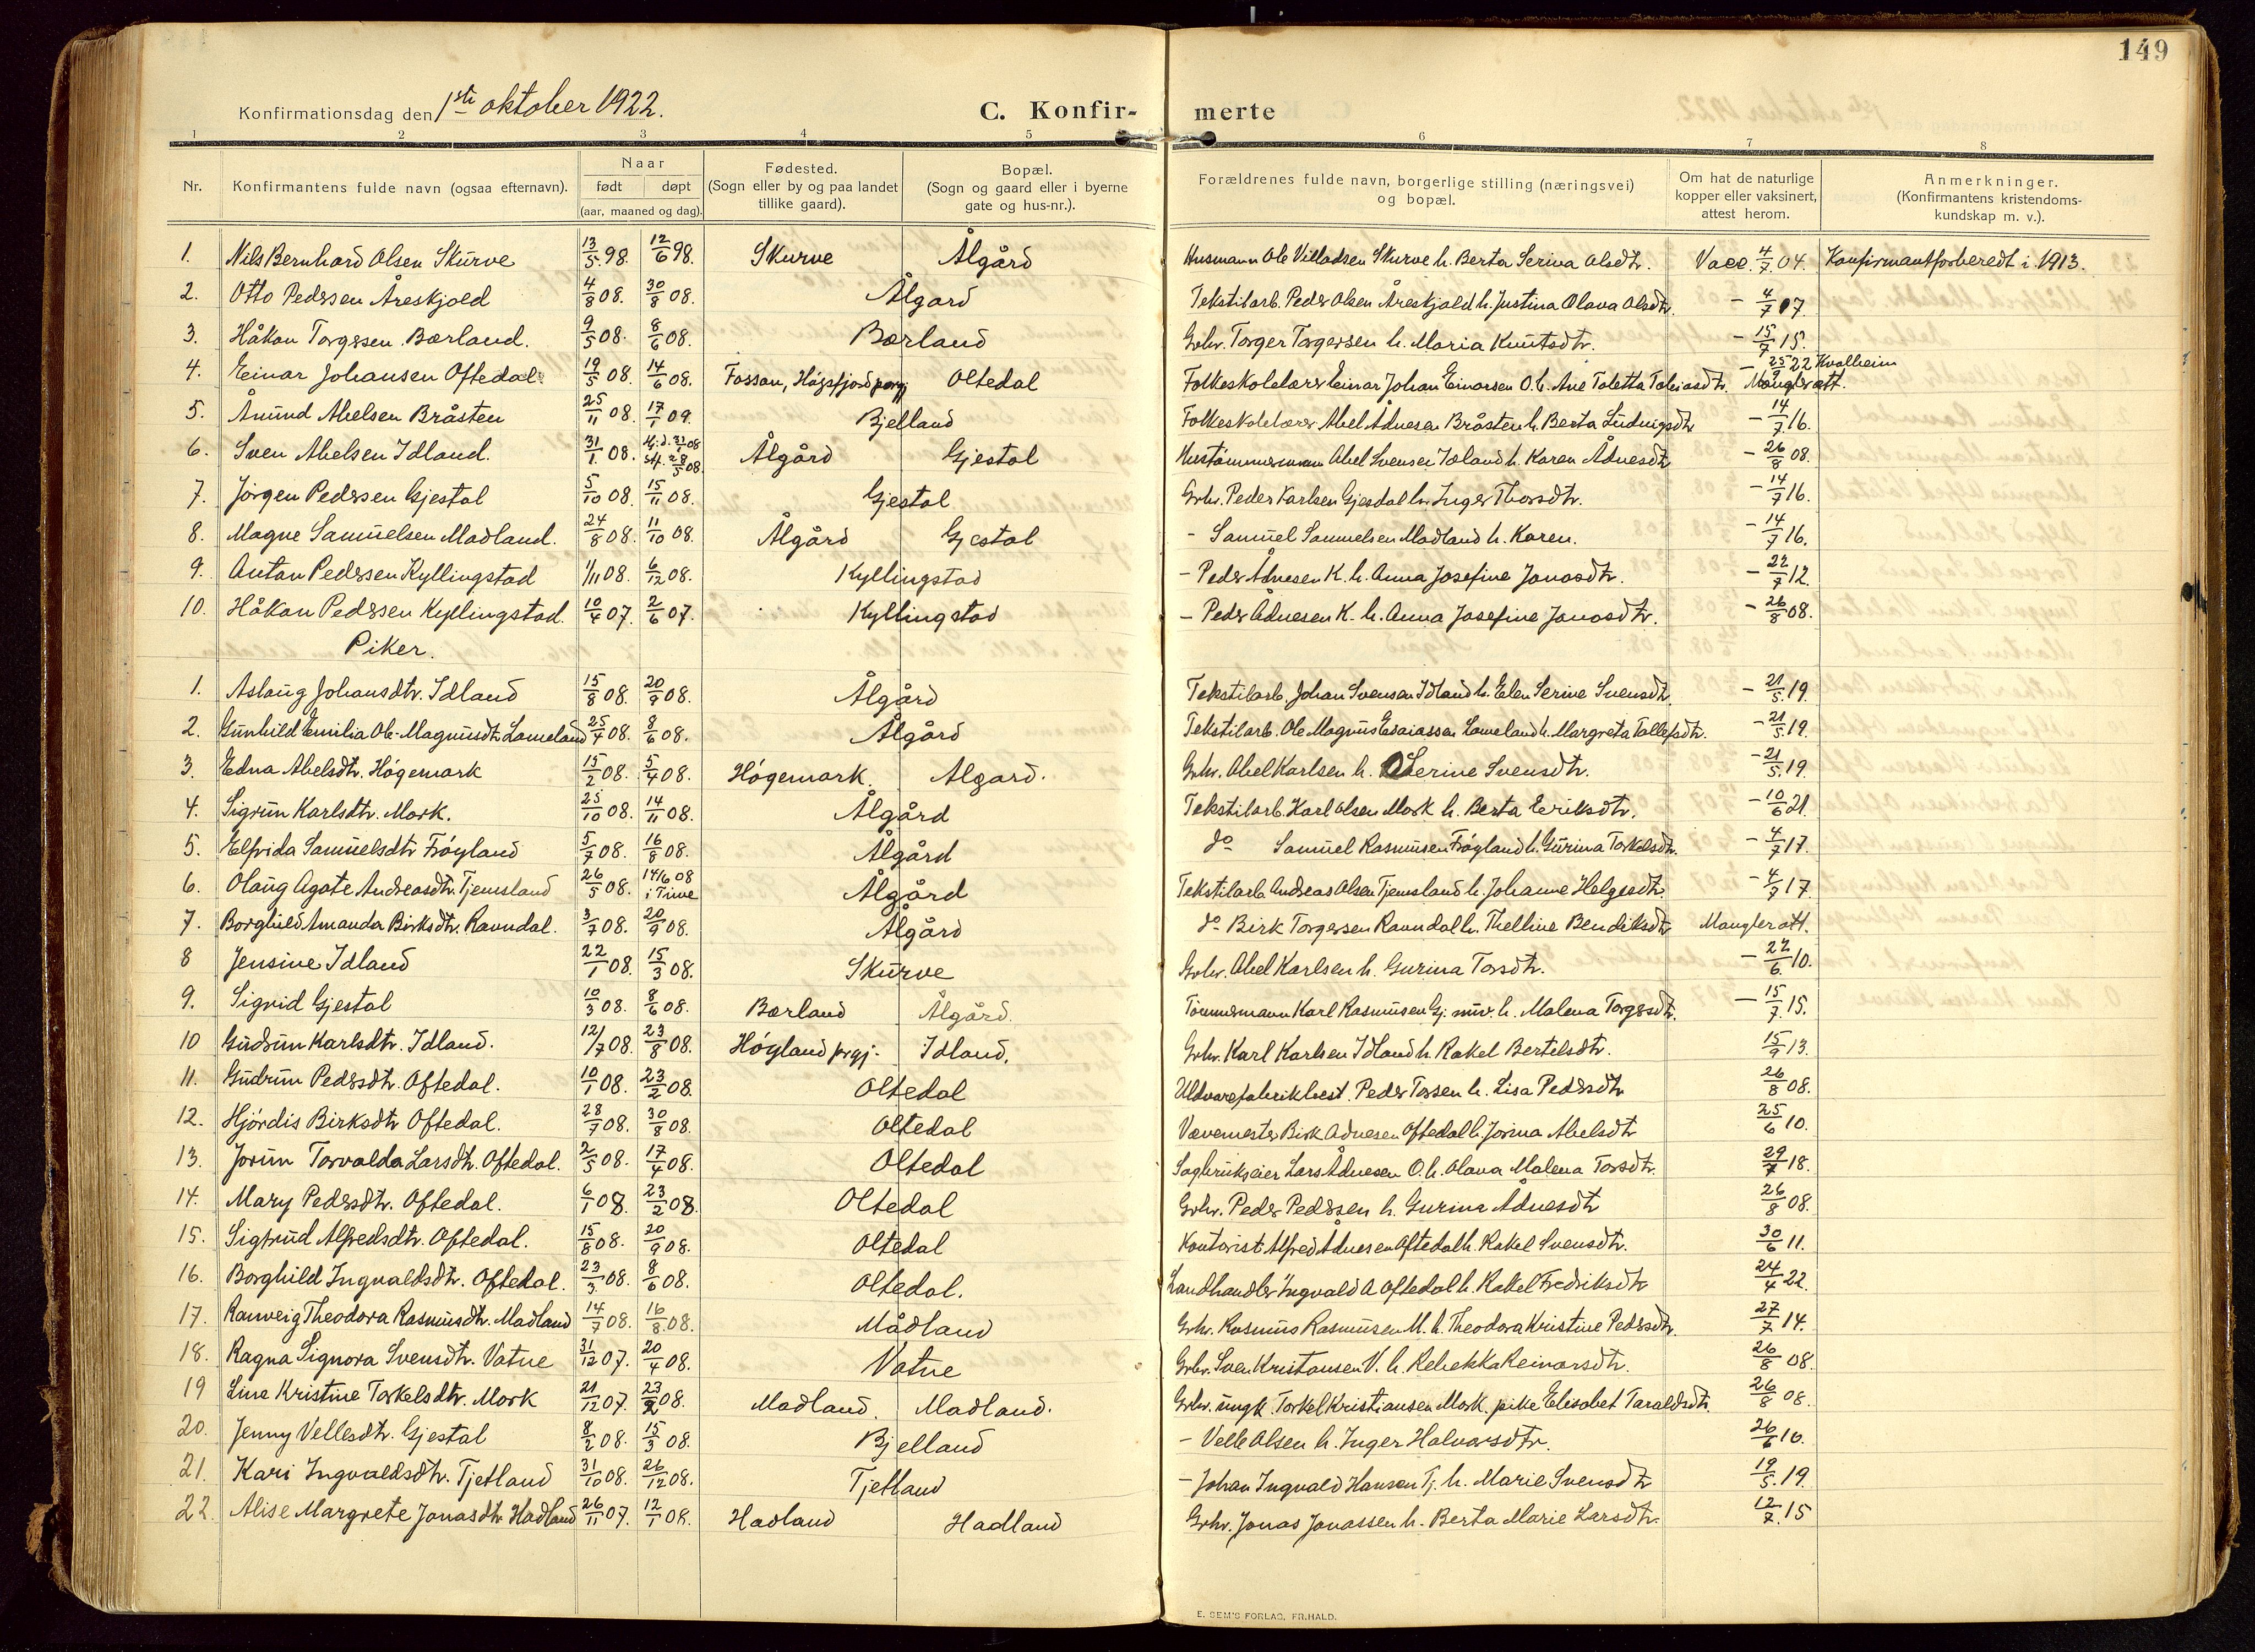 149
Konfirmationsdag den 1ste oktober 1922.
C. Konfir- merte
1 2 3 4 5 6 7 8
Nr. Konfirmantens fulde navn (ogsaa efternavn). Naar født døpt (aar, maaned og dag). Fødested. (Sogn eller by og paa landet tillike gaard). Bopæl. (Sogn og gaard eller i byerne gate og hus-nr.). Forældrenes fulde navn, borgerlige stilling (næringsvei) og bopæl. Om hat de naturlige kopper eller vaksinert, attest herom. Anmerkninger. (Konfirmantens kristendoms- kundskap m. v.).
1. Nils Bernhard Olsen Skurve 13/5 98. 12/6 98. Skurve Ålgård Husmann Ole Villadsen Skurve h. Berta Serina Olsdtr. Vacc. 4/7 04. Konfirmantforberedt i 1913.
2. Otto Pedersen Åreskjold 4/8 08. 30/8 08. Ålgård Tekstilarb. Peder Olsen Åreskjold h. Justina Olava Olsdtr. - 4/7 17
3. Håkon Torgersen Bærland. 9/5 08. 8/6 08. Bærland Grbr. Torger Torgersen h. Maria Knutsdtr. - 15/7 15.
4. Einar Johansen Oftedal 19/5 08. 14/6 08. Fossan, Høgsfjord prgj Oltedal Folkeskolelærer Einar Johan Einarsen O. h. Ane Toletta Tobiasdtr. Mangler att. - 25/9 22 Kvalheim
5. Ånund Abelsen Bråsten 25/11 08. 17/1 09. Bjelland Folkeskolelærer Abel Ådnesen Bråsten h. Berta Ludvigsdtr - 14/7 16.
6. Sven Abelsen Idland. 31/1 08. H.d. 31/1 08 St. 28/5 08. Ålgård Gjestal Hustømmermann Abel Svensen Idland h. Karen Ådnesdtr - 26/8 08.
7. Jørgen Pedersen Gjestal 5/10 08. 15/11 08. Gjestal Grbr. Peder Karlsen Gjesdal h. Inger Thorsdtr. - 14/7 16.
8. Magne Samuelsen Madland. 24/8 08. 11/10 08. Ålgård Gjestal - Samuel Samuelsen Madland h. Karen. - 14/7 16.
9. Anton Pedersen Kyllingstad 1/11 08. 6/12 08. Kyllingstad - Peder Ådnesen K. h. Anna Josefine Jonasdtr. - 22/7 12.
10. Håkon Pedersen Kyllingstad. 10/4 07. 2/6 07. Kyllingstad - Peder Ådnesen K. h. Anna Josefine Jonasdtr. - 26/8 08.
Piker.
1. Aslaug Johansdtr. Idland 15/8 08. 20/9 08. Ålgård Tekstilarb. Johan Svensen Idland h. Elen Serine Svensdtr. - 21/5 19.
2. Gunhild Emilia Ole-Magnusdtr. Lomeland 25/4 08. 8/6 08. Ålgård Tekstilarb. Ole Magnus Esaiassen Lomeland h. Margreta Tollefsdtr. - 21/5 19.
3. Edna Abelsdtr. Høgemark 15/2 08. 5/4 08. Høgemark. Ålgård. Grbr. Abel Karlsen h. Serine Svensdtr. - 21/5 19.
4. Sigrun Karlsdtr. Mork. 25/10 08. 14/11 08. Ålgård Tekstilarb. Karl Olsen Mork h. Berta Eriksdtr. - 10/6 21.
5. Elfrida Samuelsdtr Frøyland 5/7 08. 16/8 08. Ålgård do Samuel Rasmusen Frøyland h. Gurina Torkelsdtr. - 4/7 17.
6. Olaug Agate Andreasdtr. Tjemsland 26/5 08. 14/6 08 i Time Ålgård Tekstilarb. Andreas Olsen Tjemsland h. Johanne Helgesdtr. - 4/7 17.
7. Borghild Amanda Birksdtr. Ravndal. 3/7 08. 20/9 08. Ålgård do Birk Torgersen Ravndal h. Thelline Bendiksdtr Mangler att.
8 Jensine Idland 22/1 08. 15/3 08. Skurve Grbr. Abel Karlsen h. Gurina Torsdtr. - 22/6 10.
9. Sigrid Gjestal 10/3 08. 8/6 08. Bærland Ålgård. Tømmermann Karl Rasmusen Gj. h. Malena Torgersdtr. - 15/7 15.
10 Gudrun Karlsdtr. Idland. 12/7 08. 23/8 08. Høyland prgj. Idland. Grbr. Karl Karlsen Idland h. Rakel Bertelsdtr. 15/9 13.
11. Gudrun Pedersdtr. Oftedal. 10/1 08. 23/2 08. Oltedal Uldvarefabrikbest. Peder Torsen h. Lisa Pedersdtr 26/8 08.
12. Hjørdis Birksdtr Oftedal. 28/7 08. 30/8 08. Oltedal Vævemester Birk Adnesen Oftedal h. Jorina Abelsdtr 25/6 10.
13. Jorun Torvalda Larsdtr. Oftedal. 2/5 08. 17/4 08. Oltedal Sagbrukseier Lars Ådnesen O. h. Olava Malena Torsdtr. 29/7 18.
14. Mary Pedersdtr. Oftedal. 6/1 08. 23/2 08. Oltedal Grbr. Peder Pedersen h. Gurina Ådnesdtr 26/8 08.
15. Sigtrud Alfredsdtr. Oftedal. 15/8 08. 20/9 08. Oltedal Kontorist Alfred Ådnesen Oftedal h. Rakel Svensdtr. 30/6 11.
16. Borghild Ingvaldsdtr. Oftedal. 23/3 08. 8/6 08. Oltedal. Landhandler Ingvald A Oftedal h. Rakel Fredriksdtr 24/4 22.
17. Ranveig Theodora Rasmusdtr. Madland 14/7 08. 16/8 08. Mådland Grbr. Rasmus Rasmusen M. h. Theodora Kristine Pedersdtr. 27/7 14.
18. Ragna Signora Svensdtr. Vatne 31/12 07. 20/4 08. Vatne Grbr. Sven Kristansen V. h. Rebekka Reinarsdtr. 26/8 08.
19 Line Kristine Torkelsdtr. Mork 21/12 07. 23/2 08. Madland. Madland. Grbr. ungk. Torkel Kristiansen Mork. pike Elisabet Taraldsdtr. 26/8 08.
20. Jenny Vellesdtr. Gjestal 8/2 08. 15/3 08. Bjelland - Velle Olsen h. Inger Halvorsdtr. 26/6 10.
21. Kari Ingvaldsdtr. Tjetland 31/10 08. 26/12 08. Tjetland - Johan Ingvald Hansen Tj. h. Marie Svensdtr 19/5 19.
22. Alise Margrete Jonasdtr Hadland 26/11 07. 12/1 08. Hadland Hadland Grbr. Jonas Jonassen h. Berta Marie Larsdtr. 12/7 15
E. SEM'S FORLAG, FR.HALD.